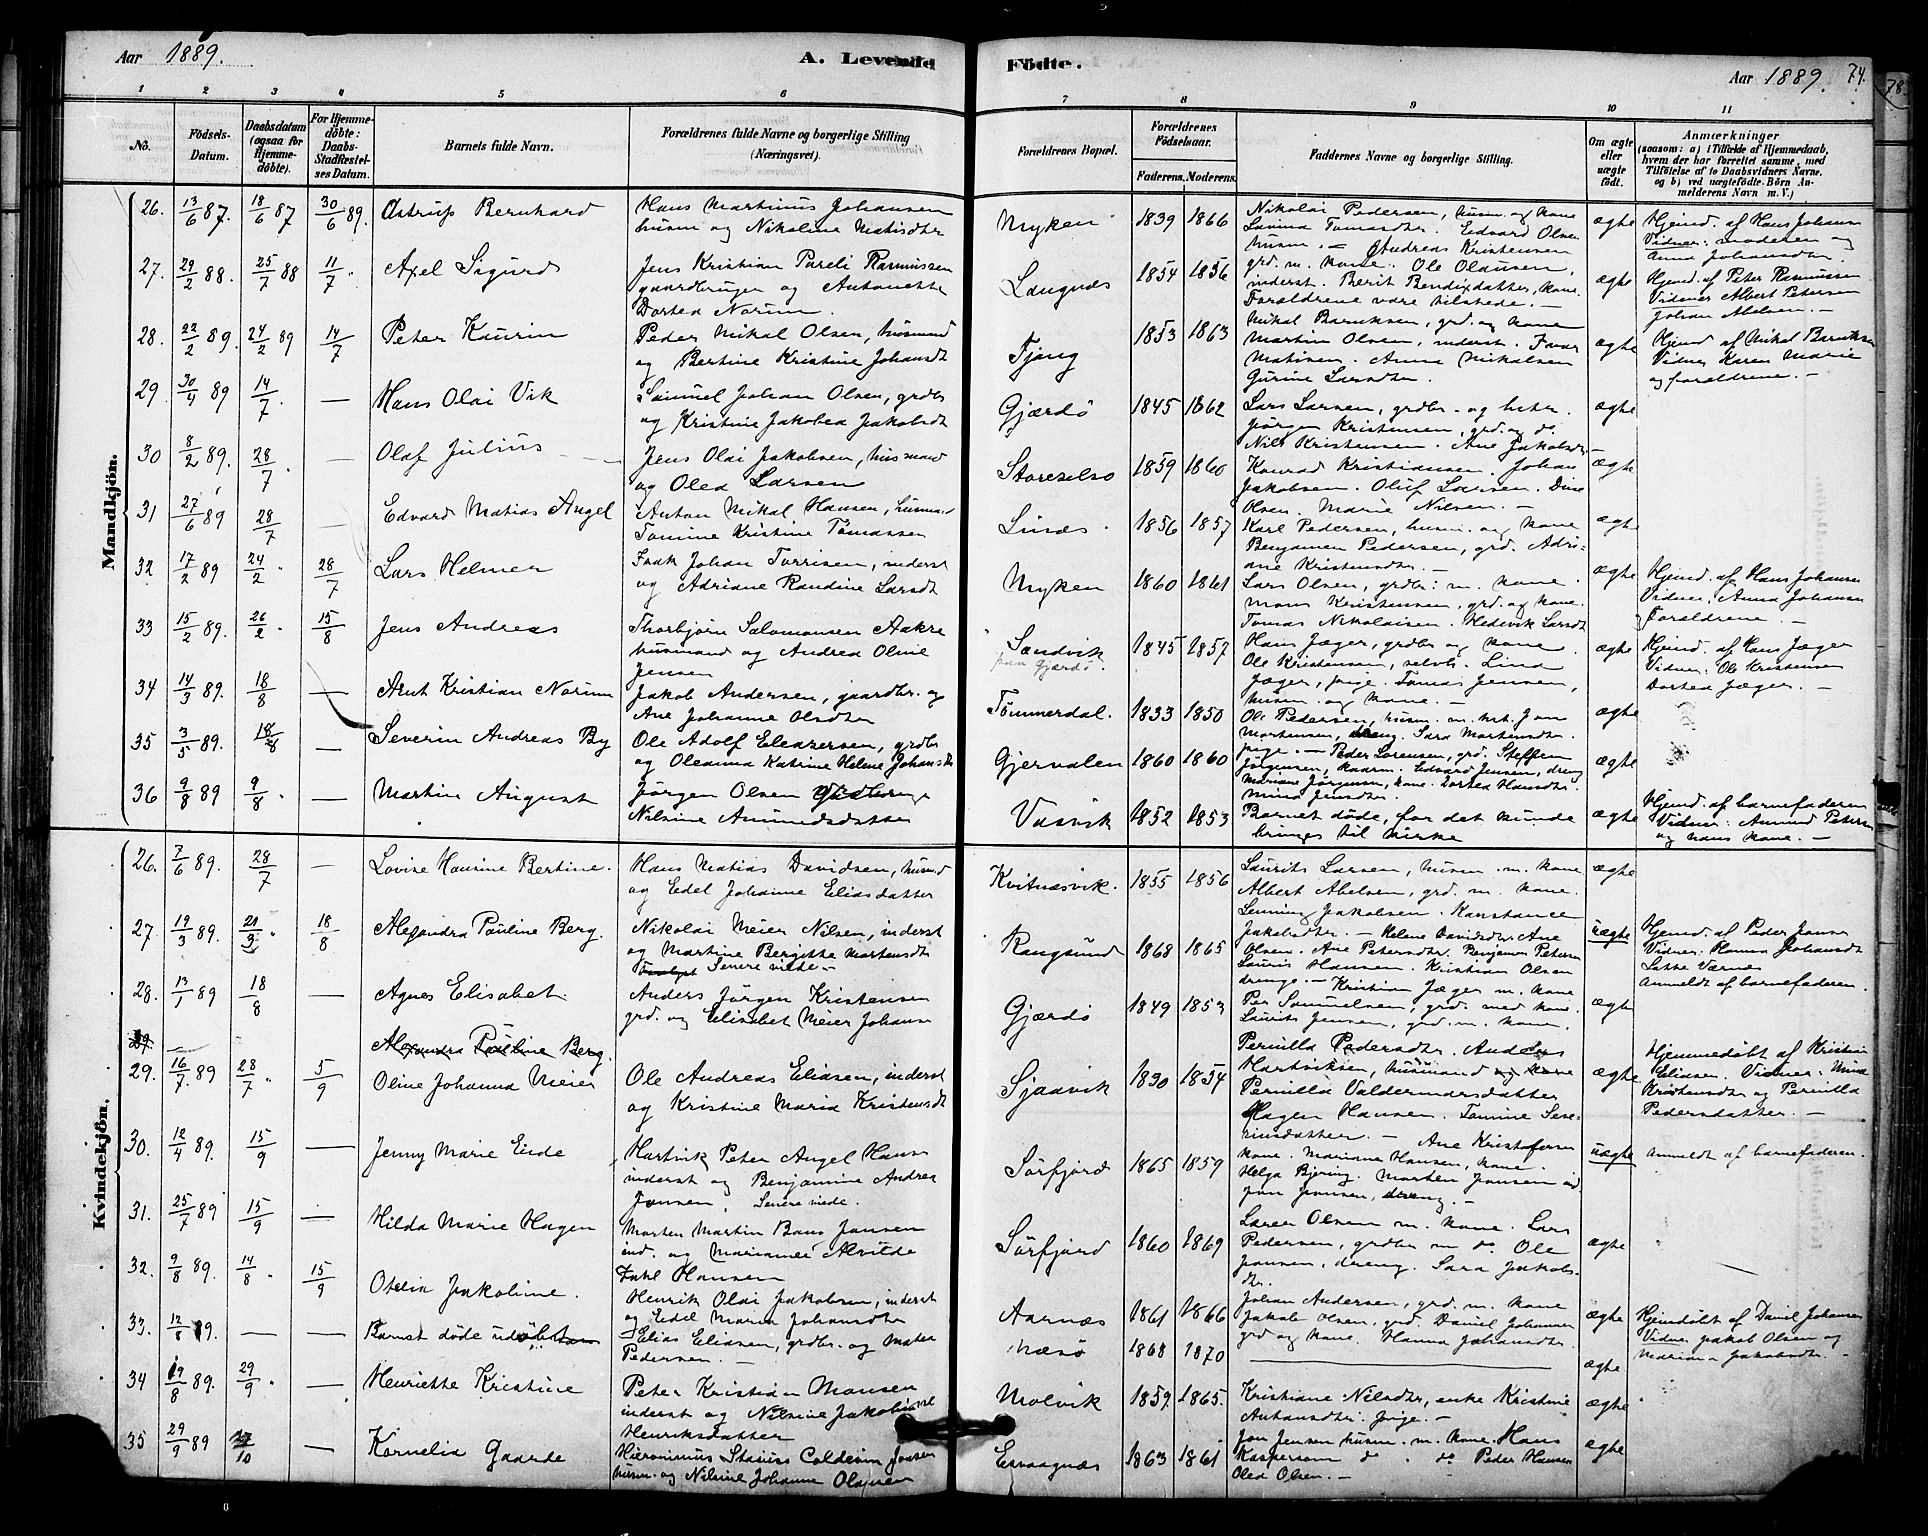 Aar 1889.
A. Levende
Födte.
Aar 1889. 74.
78
1 2 3 4 5 6 7 8 9 10 11
No.
Födsels-Datum.
Daabsdatum (ogsaa for Hjemme-döbte).
For Hjemme-döbte: Daabs-Stadfæstel-ses Datum.
Barnets fulde Navn.
Forældrenes fulde Navne og borgerlige Stilling (Næringsvei).
Forældrenes Bopæl.
Forældrenes Födselsaar.
Faderens. Moderens.
Faddernes Navne og borgerlige Stilling.
Om ægte eller uægte födt.
Anmærkninger
(saasom: a) i Tilfælde af Hjemmedaab, hvem der har forrettet samme, med Tilföielse af to Daabsvidners Navne. og b) ved uægtefödte Börn Anmelderens Navn m. V.)
Mandkjön.
26. 13/6 87. 18/6 87 30/6 89. Astrup Bernhard
Hans Martinus Johansen
husm og Nikoline Matisdtr
Myken 1839 1866
Nikolai Pedersen, husm. og kone
Lavina Tomasdtr. Edvard Olsen
husm. — Andreas Kristensen
ægte
Hjemd. af Hans Johansen
Vidner: moderen og
Anna Johansdtr.
27. 29/2 88. 25/7 88 11/7. Axel Sigurd
Jens Kristian Pareli Rasmussen
gaardbruger og Antonette
Dortea Norum.
Langnæs 1854 1856
grd. m. kone. Ole Olausen,
inderst. Berit Bendixdatter, kone.
Forældrene vare tilstede. —
ægte
Hjemd. af Peter Rasmussen
Vidner Albert Petersen
Johan Abelsen. —
28. 22/2 89. 24/2 89 14/7 Peter Kaurin
Peder Mikal Olsen, husmand
og Bertine Kristine Johansdt
Tjong 1853 1863
Mikal Baruksen, grd. og kone
Martin Olsen, inderst.
Matisen. Anna Mikalsen
Gurine Larsdtr.
ægte
Hjemd af Mikal Baruksen
Vidner Karen Marie
og forældrene. —
29. 30/4 89 14/7. — Hans Olai Vik
Samuel Johan Olsen, grdbr
og Kristine Jakobea Jakobsdt
Gjærdö 1845 1862
Lars Larsen, grdbr. og hstr.
Jørgen Kristensen, grd. og do.
Nils Kristensen. Ane Jakobsdtr
ægte
30 8/2 89. 28/7. — Olaf Julius
Jens Olai Jakobsen, husmand
og Olea Larsen
Storeselsö 1859 1860
Konrad Kristiansen. Johan
Jakobsen. Oluf Larsen. Dine
Olsen. Marie Nilsen. —
ægte
31 27/6 89 28/7 — Edvard Matias Angel
Anton Mikal Hansen, husmand
Tomine Kristine Tomassen
Linæs 1856 1857
Karl Pedersen, husm. og kone
Benjamen Pedersen, grd. Adri-
ane Kristensdtr. —
ægte
32 17/2 89 24/2. 28/7 Lars Helmer
Isak Johan Torrisen, inderst
og Adriane Randine Larsdt
Myken 1860 1861
Lars Olsen, grdbr: m. kone.
Mons Kristensen, grd. og kone.
Tomas Nikolaisen. Hedevik Larsdt
ægte
Hjemd. af Hans Johansen
Vidner, Anna Johansen
Forældrene. —
33 15/2 89. 26/2. 15/8 Jens Andreas
Thorbjørn Salomonsen Aakre
husmand og Andrea Oline
Jensen
Sandvik
paa Gjærdö.
1845 1857
Hans Jæger, grdbr og kone.
Ole Kristensen, selvb. Lina
Jæger, pige. Tomas Jensen,
husm. og kone. —
ægte
Hjemd. af Hans Jæger
Vidner. Ole Kristensen
Dortea Jæger. —
34 14/3 89. 18/8 — Arnt Kristian Norum
Jakob Andersen, gaardbr. og
Ane Johanne Olsdtr
Tømmerdal. 1833 1850
Ole Pedersen, husm. m. hst. Jon
Mortensen, dreng. Sara Mortensdtr.
ægte
35 3/5 89. 18/8 — Severin Andreas By
Ole Adolf Eleazersen, grdbr
og Oleanna Katrine Helene Johansdtr
Gjervalen 1860 1860
pige. — Peder Sorensen, grd. Steffen
Jörgensen, kaarm. Edvard Jensen, dreng
Mariane Jörgensen, kone. Dortea Hansdtr.
ægte
36 9/8 89 9/8. — Martin August
Jørgen Olsen
Nilsine Amundsdatter
Vaavik 1852 1853
Barnet døde, før det kunde
bringes til kirke
ægte
Hjemd. af barnefaderen
Vidner: Amund Petersen
og hans kone. —
Kvindekjön.
26. 7/6 89. 28/7 — Lovise Haurine Bertine.
Hans Matias Davidsen, husmd
og Edel Johanne Eliasdatter
Kvitnæsvik. 1855 1856
Laurits Larsen, husm. m. kone
Albert Abelsen, grd. m. kone.
Lenning Jakobsen. Konstance
Jakobsdtr.
ægte
27. 19/3 89. 21/3. 18/8 Alexandra Pauline Berg.
Nikolai Meier Nilsen, inderst
og Martine Bergitte Mortensdt
Senere viede —
Rangsund 1868 1865
— Helene Davidsdtr. Ane
Olsen. Ane Petersdtr. Benjamin Petersen
Lauris Hansen. Kristian Olsen
uægte
Hjemd. af Peder Jonsen
Vidner. Hanna Johansdt
Anmeldt af barnefaderen.
28. 13/1 89 18/8 — Agnes Elisabet
Anders Jørgen Kristensen
grd. og Elisabet Meier Johansn
Gjærdö 1849 1853
drenge. — Kristian Jæger m. kone
Per Samuelsen, grd. med kone.
Laurits Jensen, grd. m. kone.
ægte
29 Alexandra Pauline Berg.
29. 16/7 89 28/7. 5/9 Oline Johanna Meier
Ole Andreas Eliasen, inderst
og Kristine Maria Kristensdt
Sjaavik 1830 1854
Pernilla Pedersdtr. Anders
Hartviksen, husmand og kone
Pernilla Valdermarsdatter
Hagen Hansen. Tomine Seve-
rinsdatter. —
ægte
Hjemmedøbt af Kristian
Eliasen. Vidner. Mina
Kristensdtr og Pernilla
Pedersdatter. —
30. 12/4 89. 15/9 — Jenny Marie Eide
Hartvik Peter Angel Hansn
inderst og Benjamine Andrea
Jonsen, Senere viede.
Sörfjord 1865 1859
Ane Kristofersen
kone. Mariane Hansen, kone.
Helga Bjering. Morten Jonsen ind
Jon Jonsen, dreng. —
uægte
Anmeldt af barnefaderen.
31. 25/7 89 15/9 — Hilda Marie Hagen
Morten Martin Bans Jonsen
ind. og Marianne Alvilde
Dahl Hansen
Sörfjord 1860 1869
Lærer Olsen m. kone. Lars
Pedersen, grdbr m do. Ole
Jonsen, dreng. Sara Jakobs-
dtr.
ægte
32. 9/8 89. 14/8. 15/9 Otelia Jakobine.
Henrik Olai Jakobsen, inderst
og Edel Maria Johansdtr
Aarnæs 1861 1866
Johan Andersen, grd. m. kone
Jakob Olsen, grd. Daniel Johannsen
grd og kone. Hanna Johansdtr.
ægte
Hjemdøbt af Daniel Johansen
Vidner Jakob Olsen og
Mariane Jakobsdtr. —
33. 12/8 89. — — Barnet døde udøbt
Elias Eliasen, grdbr. og
Pedersen. —
Næsø 1868 1870
ægte
34 19/8 89. 29/9. — Henriette Kristine
Peter Kristian Monsen
inderst og Nilsine Jakobine
Henriksdatter
Molvik 1859. 1865.
Kristiane Nilsdtr, enke Kristine
Antonsdtr. Pige. —
ægte
35 29/9 89 27/10 — Kornelia Gaarde
Hieronimus Stavis Colderin Jensen
husm. og Nilsine Johanne Olausen
Esvaagnæs 1863 1861
Jon Jensen husm. m. kone. Hans
Kaspersen do. do Peder Hansen
Olea Olsen. —
ægte